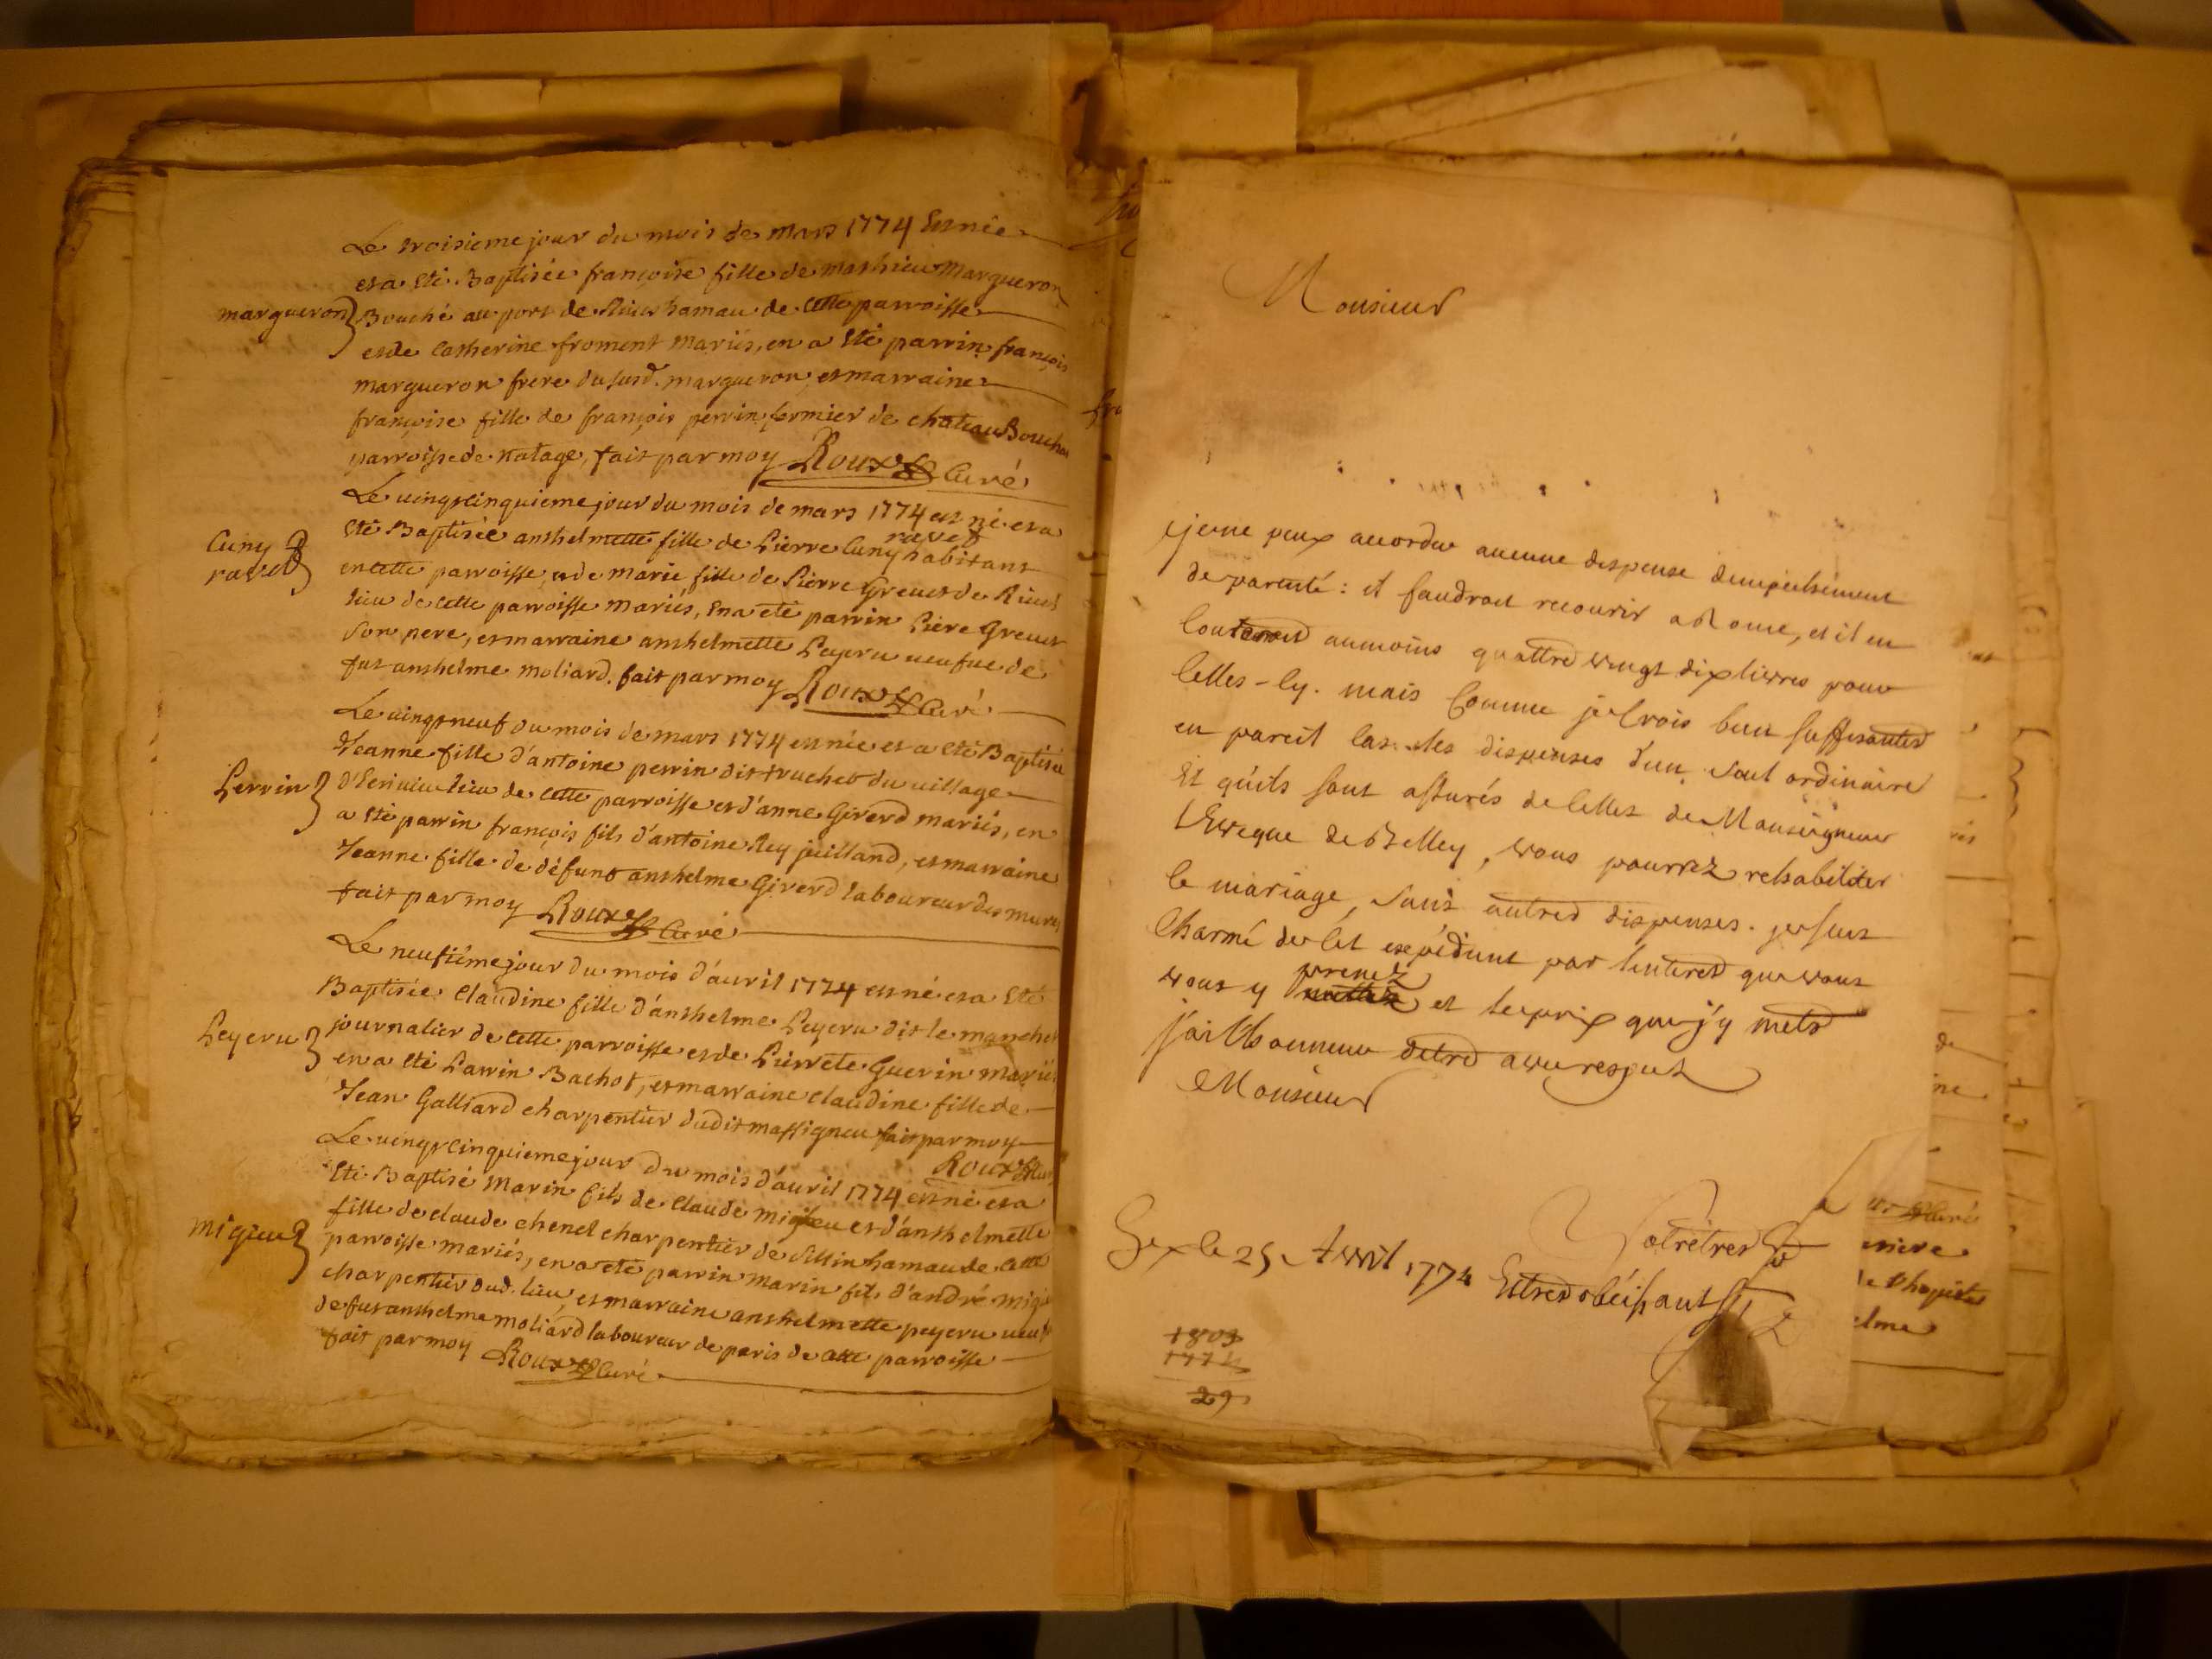 Le troisieme jour du mois de mars 1774 est née
et a eté Baptisée françoise fille de mathieu Margueron
margueron
Bouché au port de hamau de cette parroisse
et de Catherine froment mariés, en a eté parrin françois
margueron frere du susd. margueron et marraine
françoise fille de françois perrin fermier de chateau Bouchas
parroisse de natage, fait par moy Roux Curé
Le vingt cinquieme jour du mois de mars 1774 est né et a
Cuny
ravet
eté Baptisée anthelmette fille de Pierre Cuny ravet habitant
en cette parroisse, et de marie fille de Pierre Grenet de
lieu de cette parroisse mariés, en a eté parrin Piere Grenet
son pere, et marraine anthelmette Peyru veufue de
fut anthelme moliard. fait par moy Roux Curé
Le vingt neuf du mois de mars 1774 est née et a eté Baptisée
Jeanne fille d'antoine perrin dit truchet du village
Perrin
lieu de cette parroisse et d'anne Girerd mariés, en
a eté parrin françois fils d'antoine Rey juilland, et marraine
Jeanne fille de défunt anthelme Girerd laboureur des mures
fait par moy Roux Curé
Le neufiéme jour du mois d'auril 1774 est né et a eté
Baptisée Claudine fille d'anthelme Peyeru dit le manchot
Peyeru
journalier de cette parroisse et de Pierrete Guerin mariés
en a eté Parrin Bachot, et marraine claudine fille de
Jean Galliard charpentier dudit massigneu fait par moy
Roux Curé
Le vingt cinquieme jour du mois d'auril 1774 est né et a
eté Baptisé Marin fils de Claude migieu et d'anthelmette
fille de claude chenel charpentier de Sillin hamau de cette
migieu
parroisse mariés, en a eté parrin marin fils d'andré migieu
charpentier dud. lieu, et marraine anthelmette peyeru veuf
de fut anthelme moliard laboureur de paris de cette parroisse
fait par moy Roux Curé
Monsieur
je ne peux accorder aucune dispense d'empechement
de parenté : il faudroit recourir a Rome, et il en
couteroit aumoins quattre vingt dix livres pour
celles-cy. mais Comme je crois bien suffisantes
en pareil cas les dispenses d'un seul ordinaire
Et qu'ils sont assurés de celles de Monseigneur
l'Eveque de Belley, vous pourrez rehabiliter
le mariage, sans autres dispenses. je suis
Charmé de cet expédient par linteret que vous
vous y prenez et le prix que j'y mets
j'ai l'honneur d'etre avec respect
Monsieur
Votre tres
Gex le 25 Avril 1774 Et tres obéissant
1803
1774
29
Curé